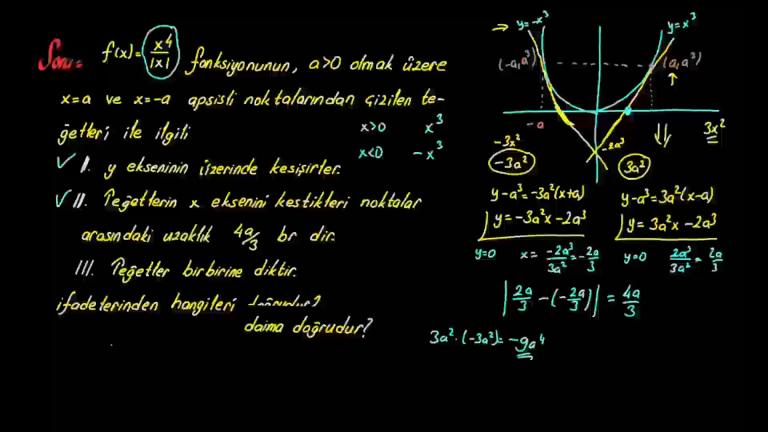 Soru= f(x)= x⁴/|x| fonksiyonunun, a>0 olmak üzere
x=a ve x=-a apsisli noktalarından çizilen te-
ğetleri ile ilgili
x>0 x³
x<0 -x³
✓ I. y ekseninin üzerinde kesişirler.
✓ II. Teğetlerin x eksenini kestikleri noktalar
arasındaki uzaklık 4a/3 br dir.
III. Teğetler birbirine diktir.
ifadelerinden hangileri
daima doğrudur?
y=-x³ y=x³
(-a,a³) (a,a³)
-a
-2a³
-3x² 3x²
-3a² 3a²
y-a³=-3a²(x+a)
y=-3a²x-2a³
y=0 x= -2a³/3a² = -2a/3
y-a³=3a²(x-a)
y=3a²x-2a³
y=0 2a³/3a² = 2a/3
|2a/3 - (-2a/3)| = 4a/3
3a².(-3a²)= -9a⁴